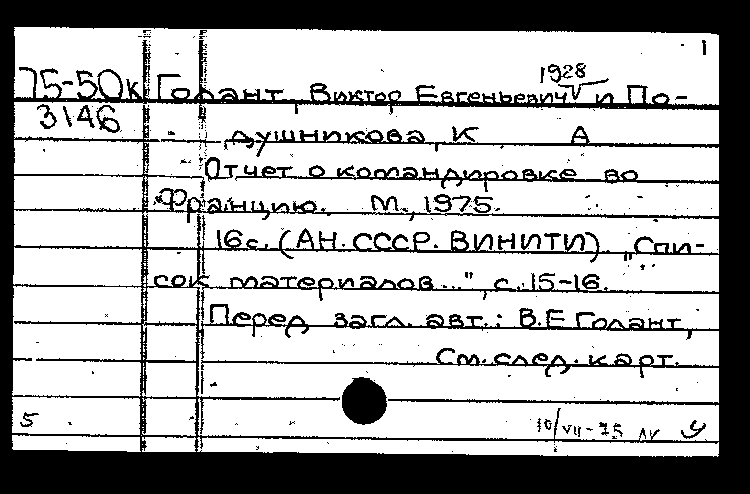 1
1928
75-50к Голант, Виктор Евгеньевич и По-
3146 душникова, К А
Отчет о командировке во
Францию. М., 1975.
16с. (АН. СССР. ВИНИТИ). „Спи-
сок материалов...", с. 15-16.
Перед загл. авт.: В.Е Голант,
См. след. карт.
5 10/VII-75